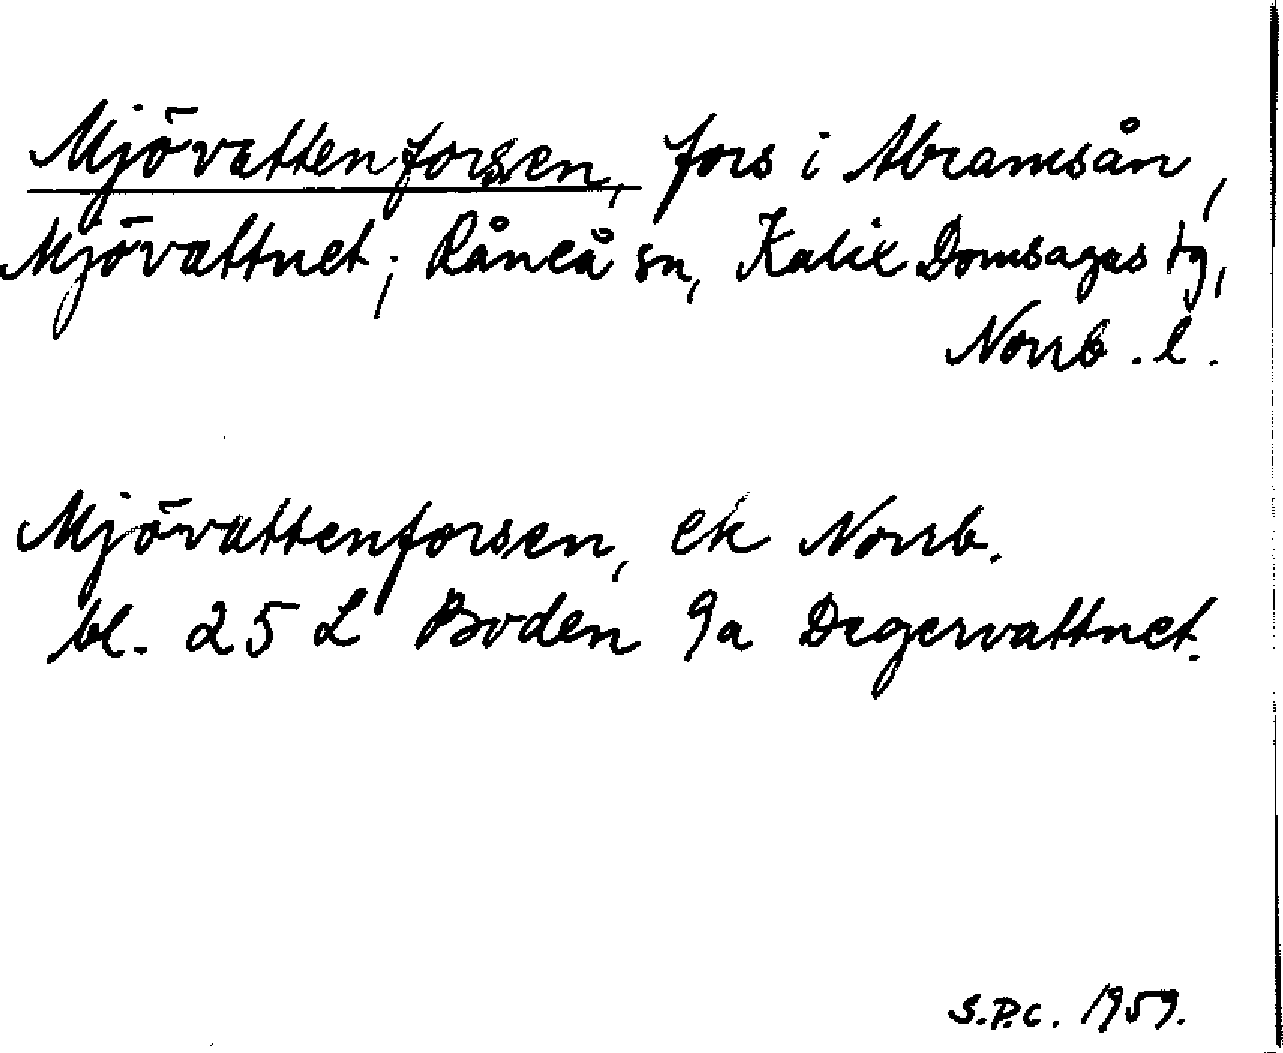 Mjövattenforsen, fors i Abramsån,
Mjövattnet; Råneå sn, Kalix Domsagas tg,
Norrb. l.
Mjövattenforsen, ek Norrb.
bl. 25 L Boden 9a Degervattnet.
S.P.C. 1959.